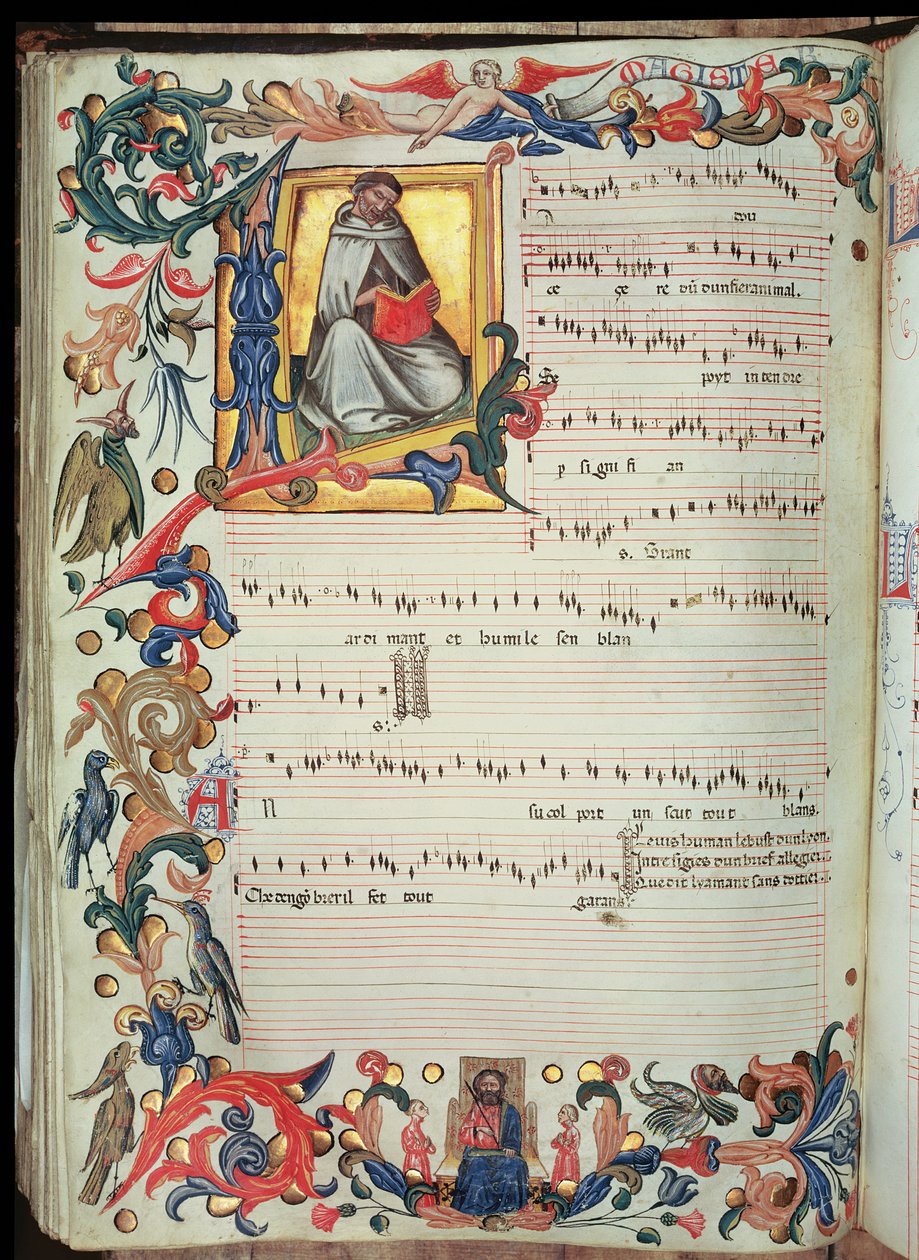 MAGISTER
D cou
ce ge re dū dun fier animal.
Se poyt in ten dre
p si gni fi an
s. Grant
ar di mant et humi le sen blan
s:
A n su col port un scut tout blans.
garans.
Leuis human le bust dun lyon.
Intresigies dun brief allegier.
Que dit lyamant sans